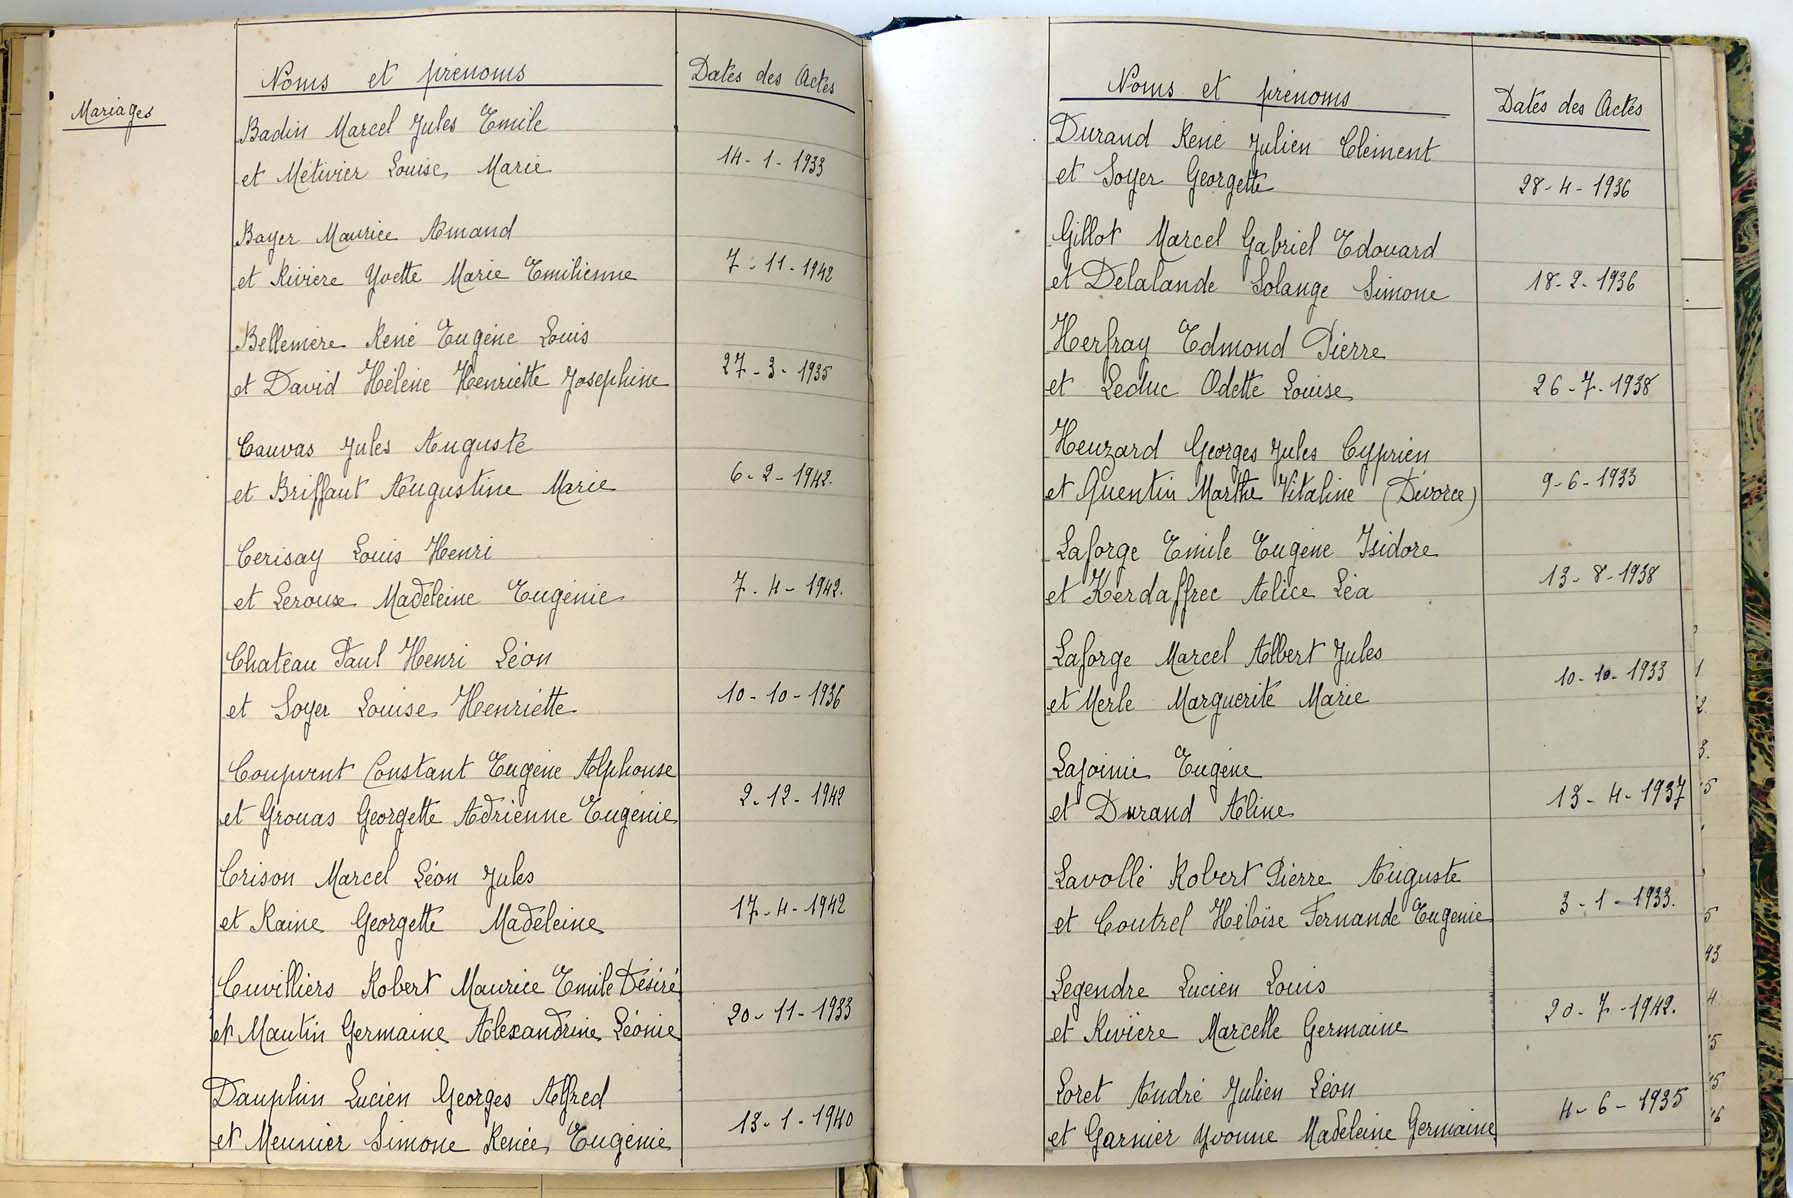 Mariages
Noms et prénoms Dates des Actes
Badin Marcel Jules Emile
et Métivier Louise Marie 14-1-1933
Bayer Maurice Amand
et Rivière Yvette Marie Emilienne 7-11-1942
Bellemère René Eugène Louis
et David Hélène Henriette Joséphine 27-3-1935
Cauvas Jules Auguste
et Briffaut Augustine Marie 6-2-1942.
Cerisay Louis Henri
et Leroux Madeleine Eugénie 7-4-1942.
Chateau Paul Henri Léon
et Soyer Louise Henriette 10-10-1936
Coupvent Constant Eugène Alphonse
et Grouas Georgette Adrienne Eugénie 2-12-1942
Crison Marcel Léon Jules
et Raine Georgette Madeleine 17-4-1942
Cuvilliers Robert Maurice Emile Désiré
et Mautin Germaine Alexandrine Léonie 20-11-1933
Dauphin Lucien Georges Alfred
et Meunier Simone Renée Eugénie 13-1-1940
Noms et prénoms Dates des Actes
Durand René Julien Clément
et Soyer Georgette 28-4-1936
Gillot Marcel Gabriel Edouard
et Delalande Solange Simone 18-2-1936
Herfray Edmond Pierre
et Leduc Odette Louise 26-7-1938
Heuzard Georges Jules Cyprien
et Quentin Marthe Vitaline (Divorce) 9-6-1933
Laforge Emile Eugène Isidore
et Kerdaffrec Alice Léa 13-8-1938
Laforge Marcel Albert Jules
et Merle Marguerite Marie 10-10-1933
Lajoinie Eugène
et Durand Aline 13-4-1937
Lavollé Robert Pierre Auguste
et Coutrel Héloïse Fernande Eugénie 3-1-1933.
Legendre Lucien Louis
et Rivière Marcelle Germaine 20-7-1942.
Loret André Julien Léon
et Garnier Yvonne Madeleine Germaine 4-6-1935